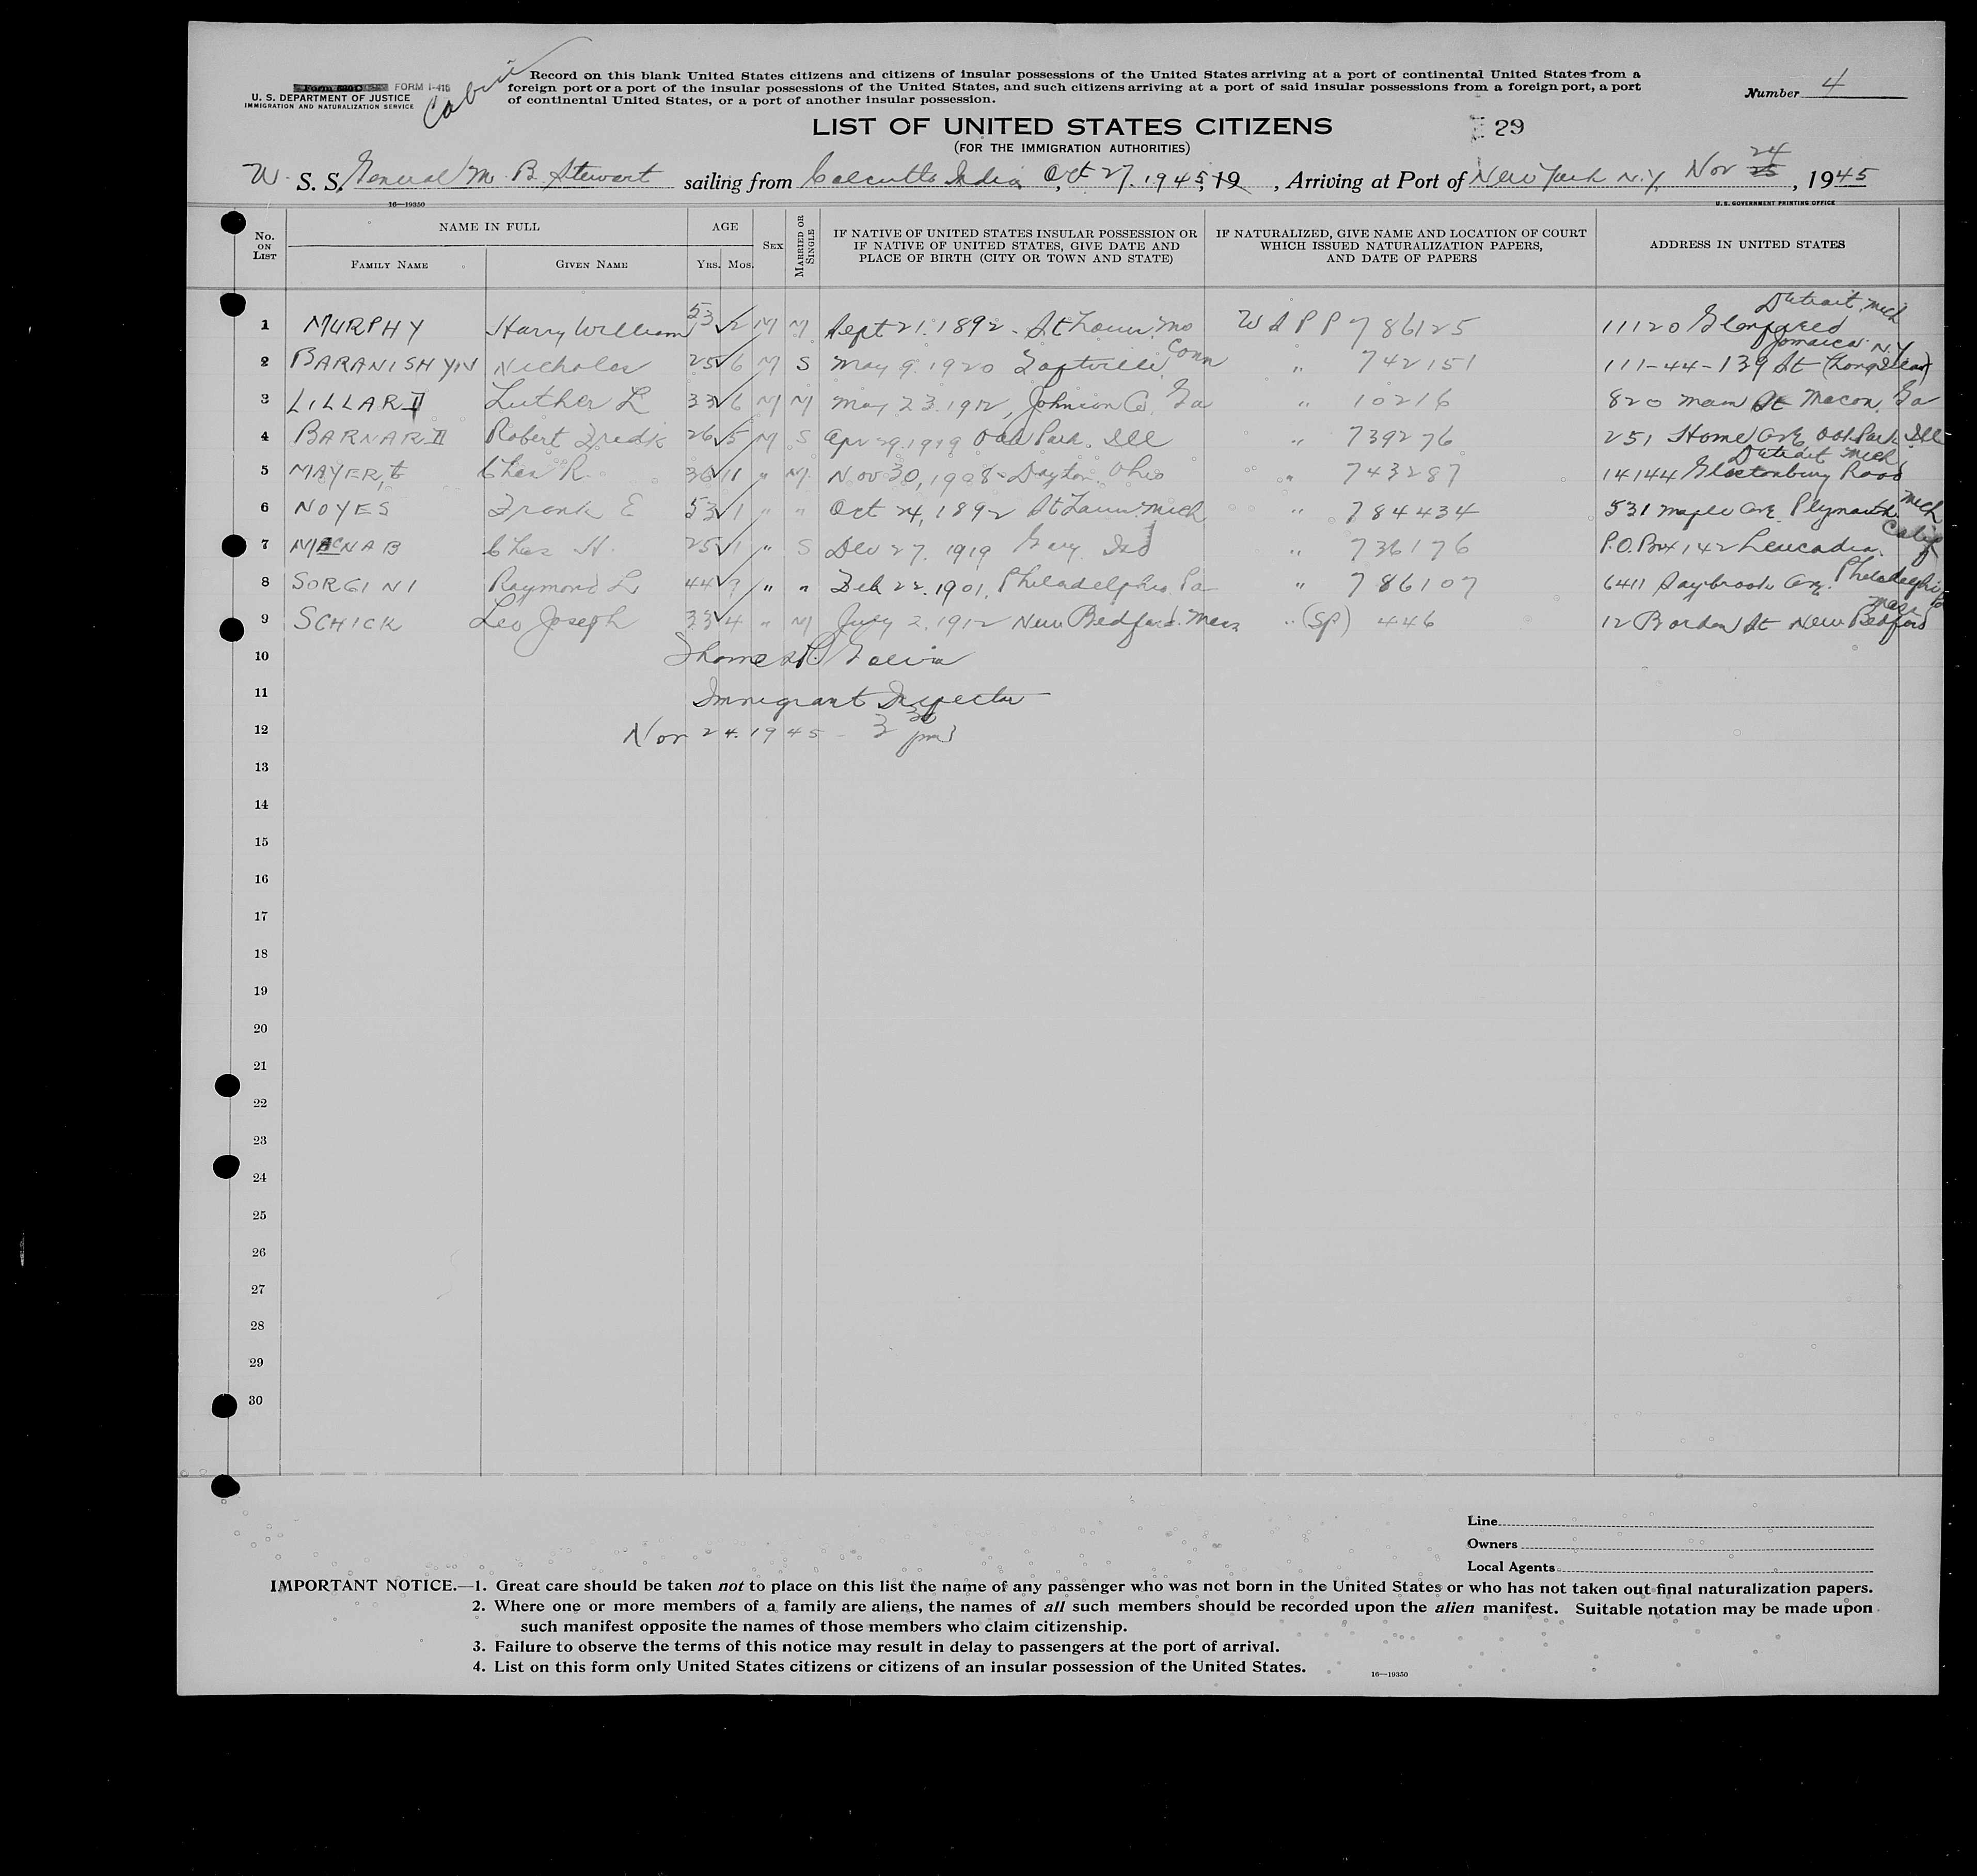 FORM I-415
U. S. DEPARTMENT OF JUSTICE
IMMIGRATION AND NATURALIZATION SERVICE
Cabin
Record on this blank United States citizens and citizens of insular possessions of the United States arriving at a port of continental United States from a
foreign port or a port of the insular possessions of the United States, and such citizens arriving at a port of said insular possessions from a foreign port, a port
of continental United States, or a port of another insular possession.
Number 4
LIST OF UNITED STATES CITIZENS
29
(FOR THE IMMIGRATION AUTHORITIES)
W. S. S. General M. B. Stewart sailing from Calcutta India, Oct 27. 1945, 19 , Arriving at Port of New York N.Y. Nov 24 25, 1945
16—19350
U. S. GOVERNMENT PRINTING OFFICE
No. ON LIST NAME IN FULL FAMILY NAME GIVEN NAME AGE YRS. MOS. SEX MARRIED OR SINGLE
IF NATIVE OF UNITED STATES INSULAR POSSESSION OR IF NATIVE OF UNITED STATES, GIVE DATE AND PLACE OF BIRTH (CITY OR TOWN AND STATE)
IF NATURALIZED, GIVE NAME AND LOCATION OF COURT WHICH ISSUED NATURALIZATION PAPERS, AND DATE OF PAPERS
ADDRESS IN UNITED STATES
1 MURPHY Harry William 53 2 M M Sept 21. 1892 - St Louis. Mo W D P P 786125 11120 Detroit, Mich
2 BARANISHYN Nicholas 25 6 M S May 9. 1920 Taftville, Conn " 742151 111-44-139 St (Long Island) Jamaica N.Y.
3 LILLARD Luther L 33 6 M M May 23. 1912, Johnson Co. Ga " 10216 820 Main St Macon. Ga
4 BARNARD Robert Fredk 26 5 M S Apr 29. 1919 Oak Park. Ill " 739276 251 Home Ave Oak Park Ill
5 MAYER, Chas R. 36 11 " M Nov 30, 1908 - Dayton. Ohio " 743287 14144 Glastonbury Road Detroit Mich
6 NOYES Frank E 53 1 " " Oct 24, 1892 St Louis. Mich " 784434 531 Maple Ave. Plymouth. Mich
7 MACNAB Chas H. 25 1 " S Dec 27. 1919 Gary Ind " 736176 P.O. Box 142 Leucadia. Calif
8 SORGINI Raymond L 44 9 " " Feb 22. 1901. Philadelphia. Pa " 786107 6411 Saybrook Ave. Philadelphia Pa
9 SCHICK Leo Joseph 33 4 " M July 2. 1912 New Bedford. Mass " (SP) 446 12 Borden St New Bedford Mass
10 Thomas
11 Immigrant Inspector
12 Nov 24. 1945 - 3 30 pm
13
14
15
16
17
18
19
20
21
22
23
24
25
26
27
28
29
30
Line
Owners
Local Agents
IMPORTANT NOTICE.—1. Great care should be taken not to place on this list the name of any passenger who was not born in the United States or who has not taken out final naturalization papers.
2. Where one or more members of a family are aliens, the names of all such members should be recorded upon the alien manifest. Suitable notation may be made upon
such manifest opposite the names of those members who claim citizenship.
3. Failure to observe the terms of this notice may result in delay to passengers at the port of arrival.
4. List on this form only United States citizens or citizens of an insular possession of the United States.
16—19350